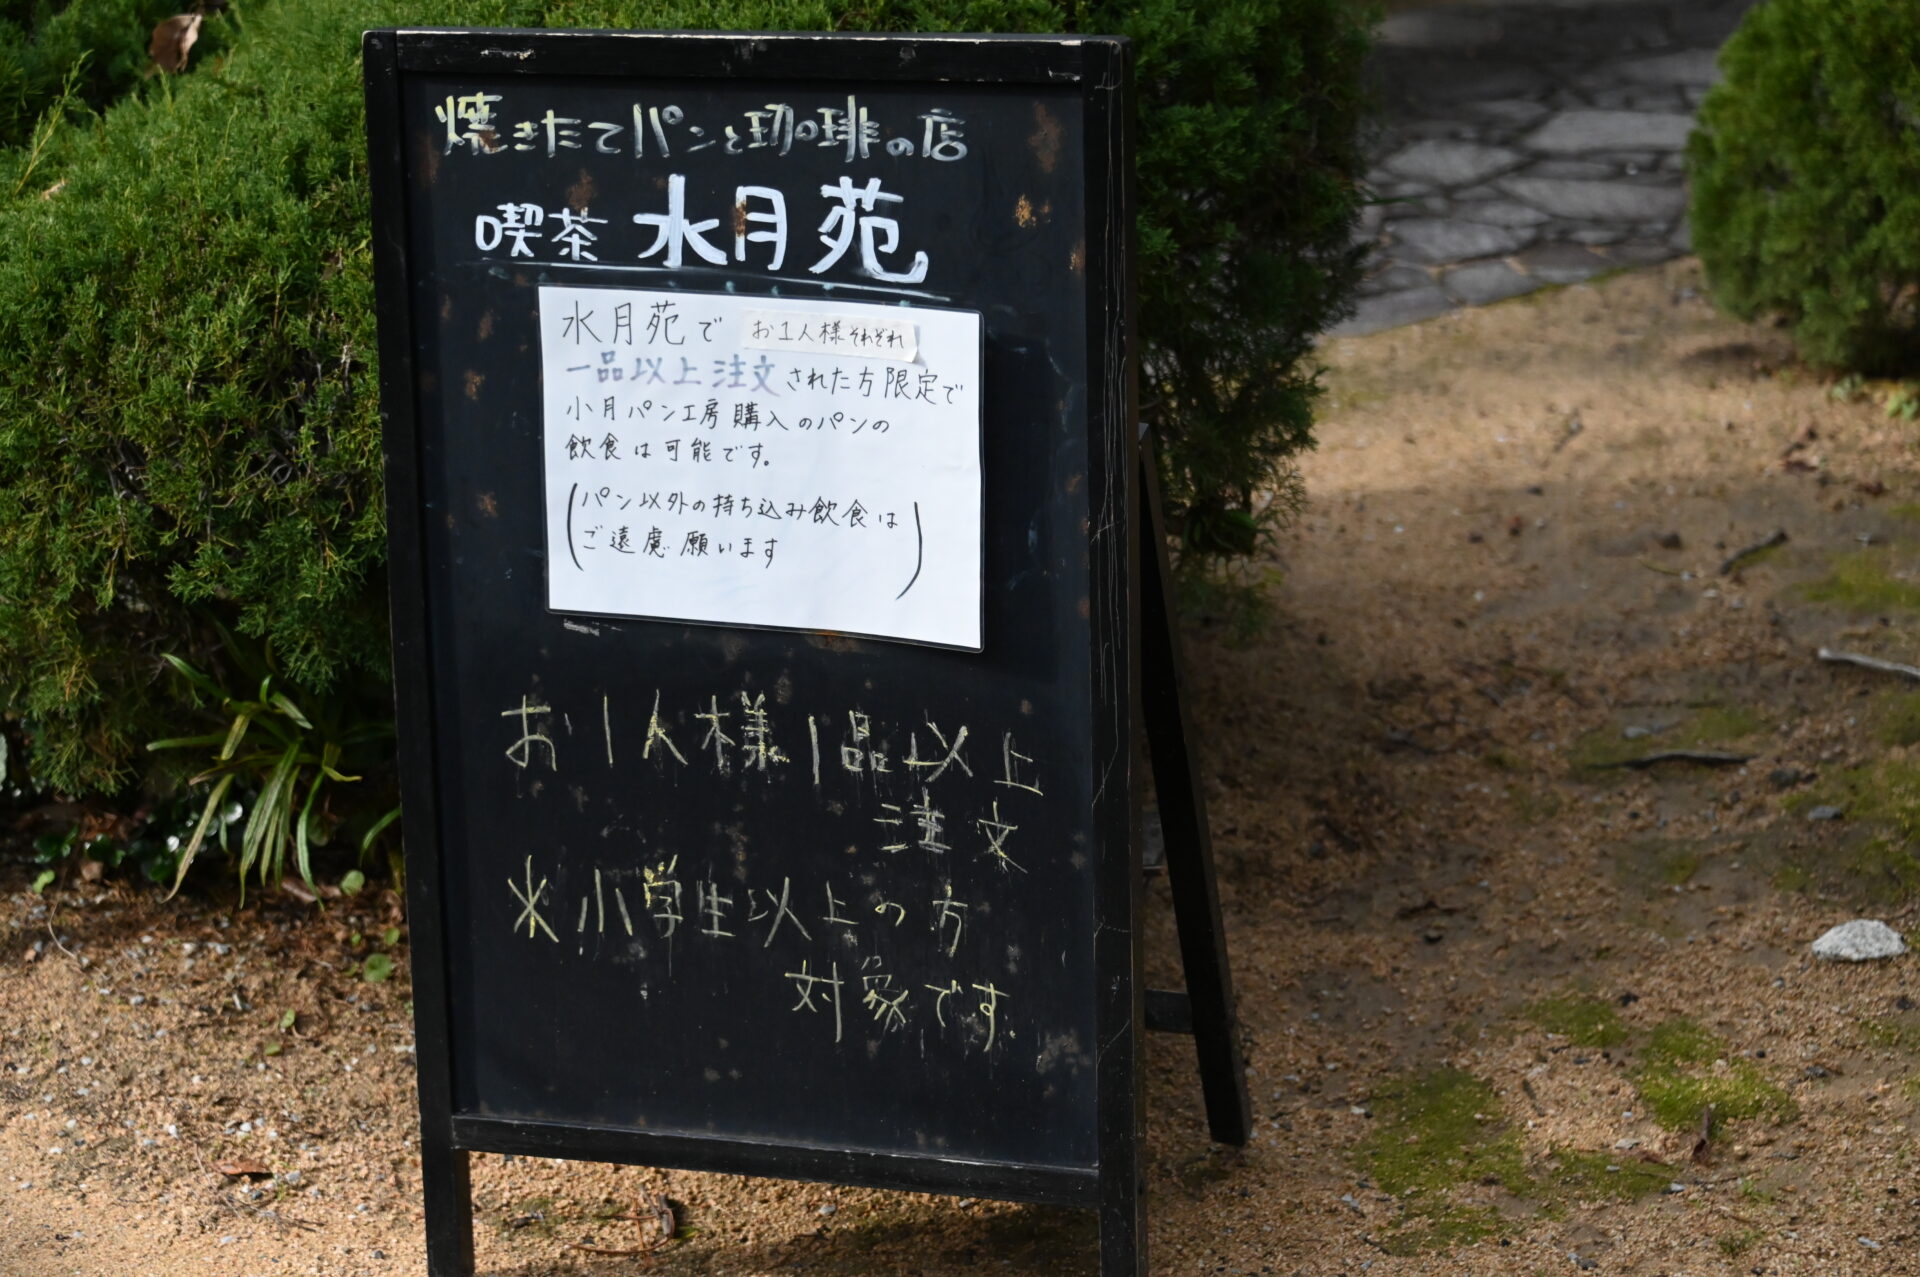 焼きたてパンと珈琲の店
喫茶 水月苑
水月苑で お1人様それぞれ
一品以上注文された方限定で
小月パン工房購入のパンの
飲食は可能です。
(パン以外の持ち込み飲食は
ご遠慮願います)
お1人様1品以上
注文
※小学生以上の方
対象です